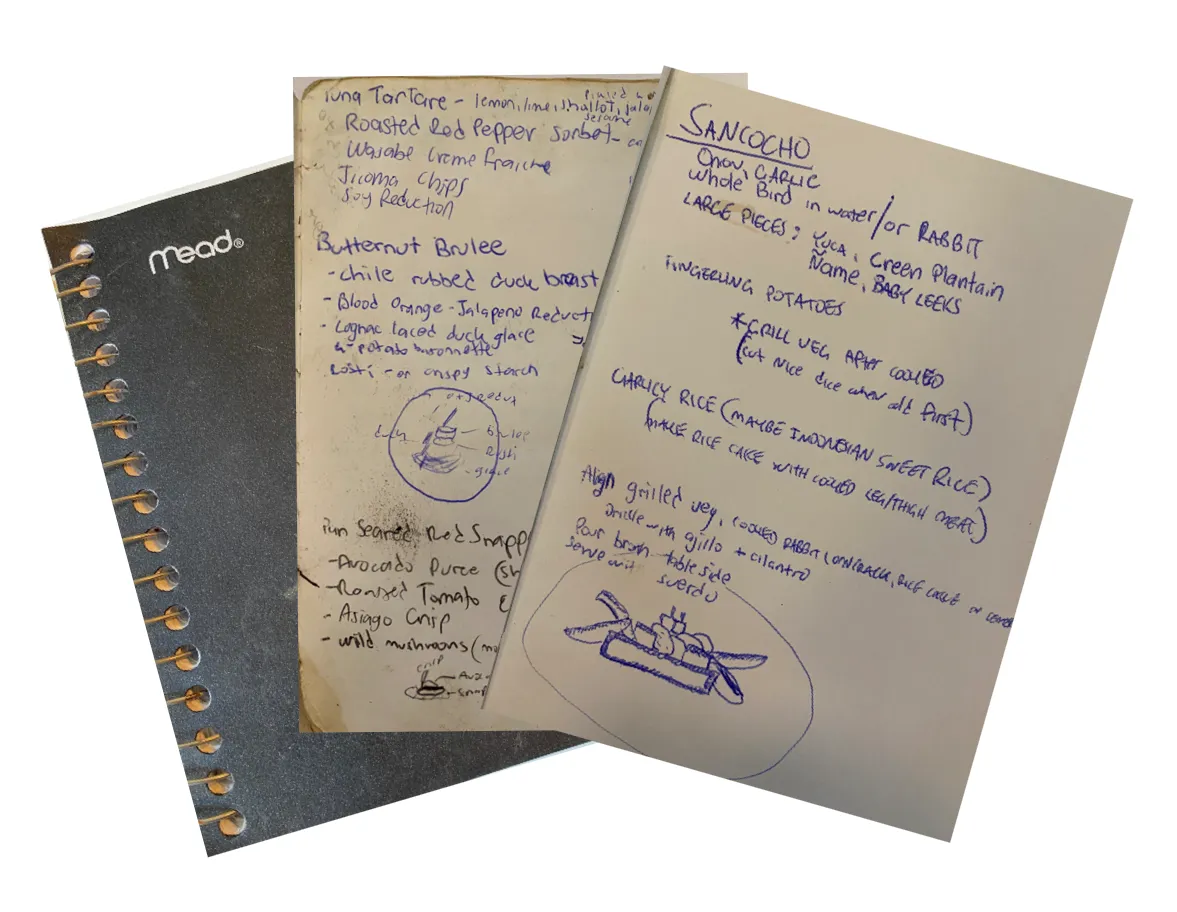 mead®
Tuna Tartare - lemon, lime, shallot,
sesame
Roasted Red Pepper sorbet-
Wasabe Creme Fraiche
Jicoma Chips
Soy Reduction
Butternut Brulee
-chile rubbed duck breast
- Blood Orange-Jalapeno Reduct
- Cognac laced duck glace
potato
Rosti - or crispy starch
duck
Brulee
Rosti
glace
Pan Seared Red Snapp
-Avocado Puree (Sh
-Roasted Tomato
- Asiago Crisp
- wild mushrooms (
crisp
SANCOCHO
Onion, GARLIC
whole Bird in water/or RABBIT
LARGE PIECES: Yuca, Green Plantain
Ñame, BABY LEEKS
FINGERLING POTATOES
*GRILL VEG AFTER COOKED
(cut nice dice when cold first)
GARLICY RICE (MAYBE INDONESIAN SWEET RICE)
(MAKE RICE CAKE WITH COOKED LEG/THIGH MEAT)
Align grilled veg, COOKED RABBIT RICE CAKE IN CENTER
Drizzle with + cilantro
Pour broth table side
serve